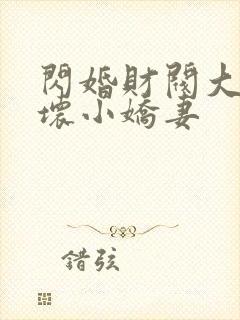 閃婚財閥大
壞小嬌妻
錯弦